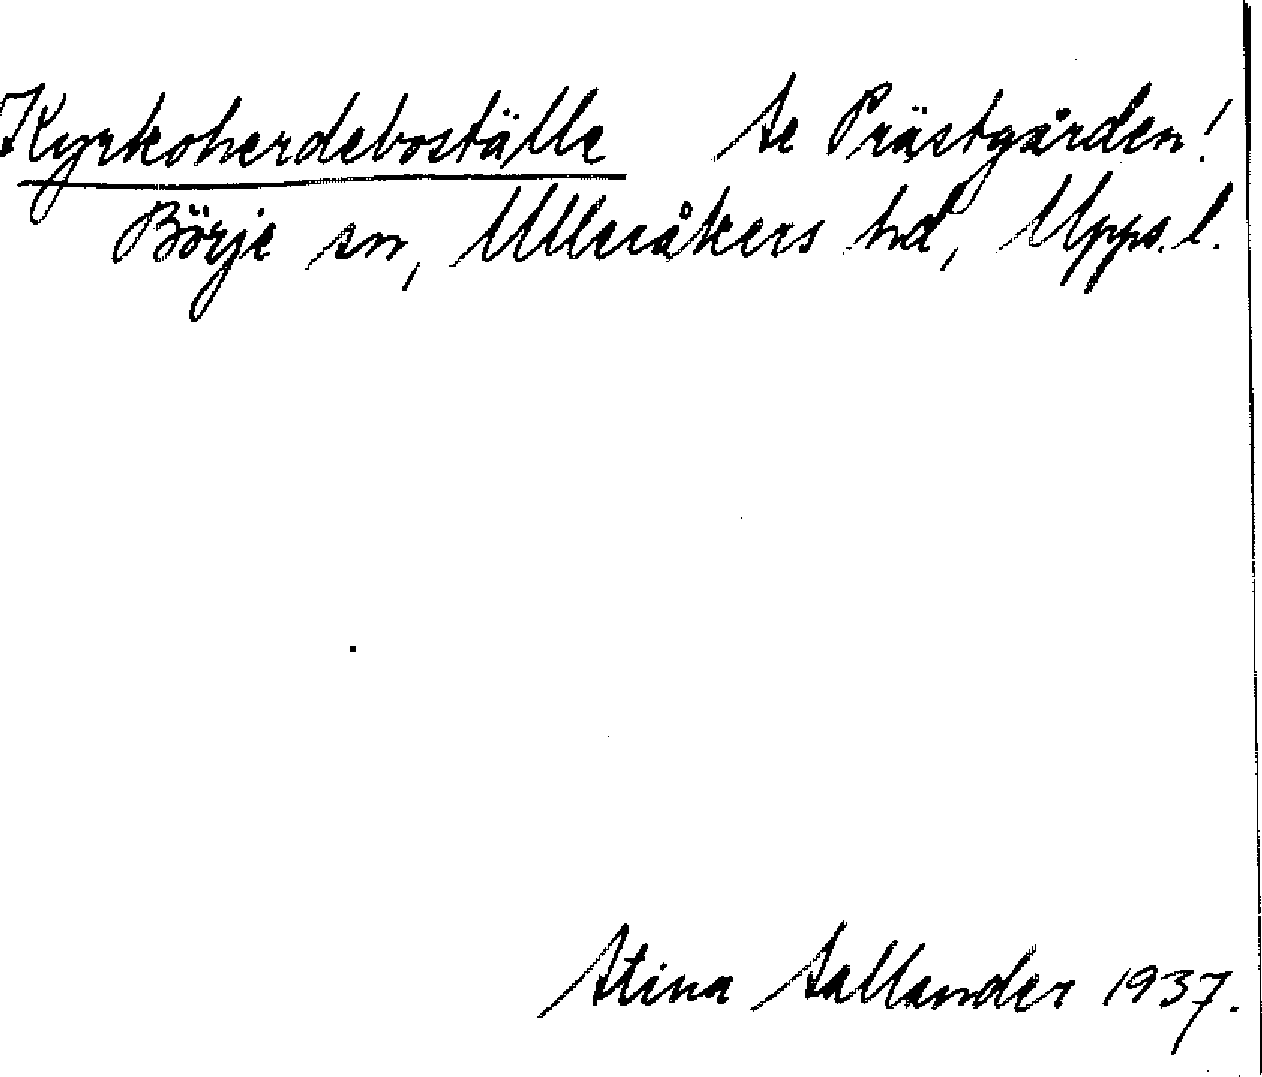 Kyrkoherdeboställe Se Prästgården!
Börje sn, Ulleråkers hd, Upps. l.
Stina Sallander 1937.